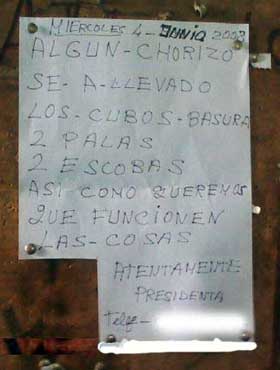 MIERCOLES 4 - JUNIO 2003
ALGUN-CHORIZO
SE-A-LLEVADO
LOS-CUBOS-BASURA
2 PALAS
2 ESCOBAS
ASI COMO QUEREMOS
QUE FUNCIONEN
LAS-COSAS
ATENTAMENTE
PRESIDENTA